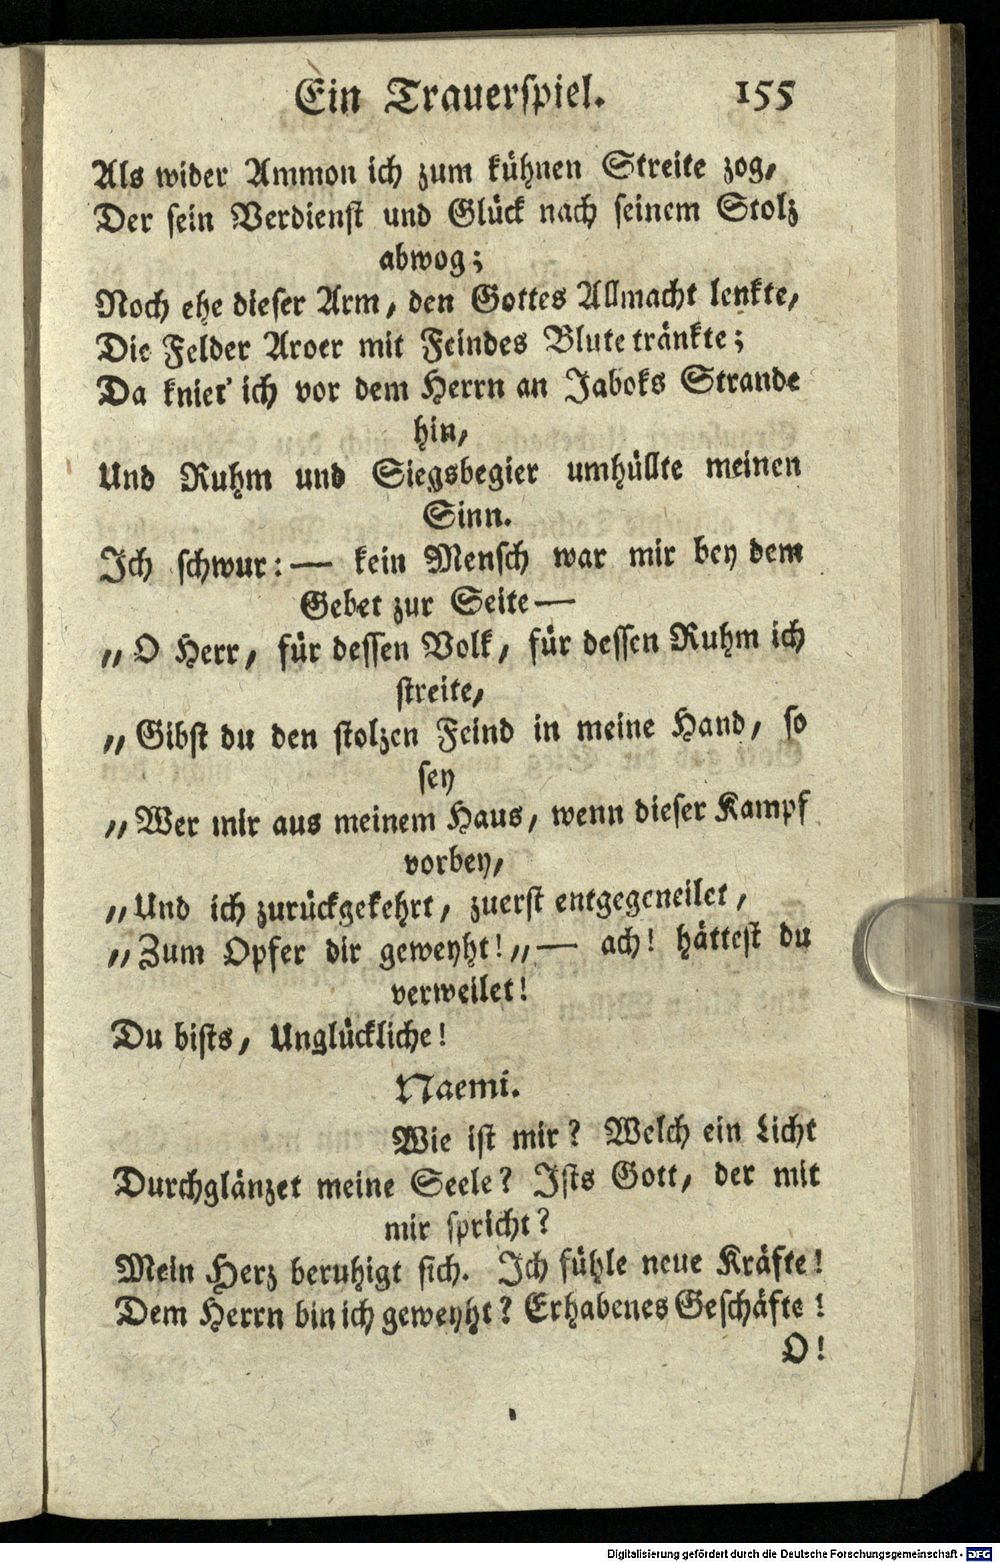 Ein Trauerspiel. 155
Als wider Ammon ich zum kühnen Streite zog,
Der sein Verdienst und Glück nach seinem Stolz
abwog;
Noch ehe dieser Arm, den Gottes Allmacht lenkte,
Die Felder Aroer mit Feindes Blute tränkte;
Da kniet' ich vor dem Herrn an Jaboks Strande
hin,
Und Ruhm und Siegsbegier umhüllte meinen
Sinn.
Ich schwur: — kein Mensch war mir bey dem
Gebet zur Seite —
„O Herr, für dessen Volk, für dessen Ruhm ich
streite,
„Gibst du den stolzen Feind in meine Hand, so
sey
„Wer mir aus meinem Haus, wenn dieser Kampf
vorbey,
„Und ich zurückgekehrt, zuerst entgegeneilet,
„Zum Opfer dir geweyht!„ — ach! hättest du
verweilet!
Du bists, Unglückliche!
Naemi.
Wie ist mir? Welch ein Licht
Durchglänzet meine Seele? Ists Gott, der mit
mir spricht?
Mein Herz beruhigt sich. Ich fühle neue Kräfte!
Dem Herrn bin ich geweyht? Erhabenes Geschäfte!
O!
Digitalisierung gefördert durch die Deutsche Forschungsgemeinschaft - DFG